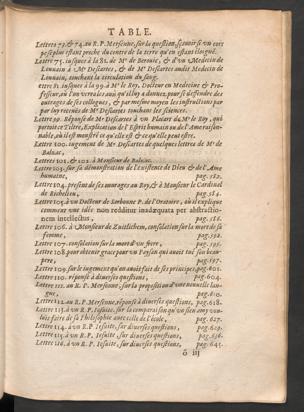 TABLE.
Lettres 73. & 74. au R. P. Mersenne, sur la question, sçavoir si un corps
pese plus estant proche du centre de la terre qu'en estant éloigné.
Lettre 75. jusques à la 81. de Mr de Beroüic, & d'un Medecin de
Louuain à Mr Descartes, & de Mr Descartes audit Medecin de
Louuain, touchant la circulation du sang.
ettre 81. jusques à la 99. à Mr le Roy, Docteur en Medecine & Pro-
fesseur, où l'on verra les avis qu'il luy a donnez, pour se deffendre des
outrages de ses collegues, & par mesme moyen les instructions par
par luy receuës de Mr Descartes touchant les sciences.
Lettre 99. Réponse de Mr Descartes à un Placart du Mr le Roy, qui
portoit ce Titre, Explication de l'Esprit humain ou de l'Ame raison-
nable, où il est monstré ce qu'elle est & ce qu'elle peut estre.
Lettre 100. jugement de Mr Descartes de quelques lettres de Mr de
Balzac,
Lettres 101. & 102. à Monsieur de Balzac.
Lettre 103. sur sa démonstration de l'existence de Dieu & de l'Ame
humaine, pag. 582.
Lettre 104. present de ses ouurages au Roy, & à Monsieur le Cardinal
de Richelieu, pag. 584.
Lettre 105. à un Docteur de Sorbonne P. de l'Oratoire, où il explique
comment une idée non redditur inadæquata per abstractio-
nem intellectus, pag. 586.
Lettre 106. à Monsieur de Zuitlichem, consolation sur la mort de sa
femme, pag. 592.
Lettre 107. consolation sur la mort d'un frere, pag. 595.
Lettre 108. pour obtenir grace pour un Paysan qui auoit tué son beau-
pere, pag. 597.
Lettre 109. sur le jugement qu'on auoit fait de ses principes, pag. 601.
Lettre 110. réponse à diuerses questions, pag. 604.
Lettre 111. au R. P. Mersenne, sur la proposition d'une nouuelle lan-
gue, pag. 610.
Lettre 112. au R. P. Mersenne, réponse à diuerses questions, pag. 618.
Lettre 113. à un R. P. Jesuite, sur la comparaison qu'un sien amy vou-
loit faire de sa Philosophie auec celle de l'école, pag. 627.
Lettre 114. à un R. P. Jesuite, sur diuerses questions, pag. 629.
Lettre 115. à un R. P. Jesuite, sur diuerses questions, pag. 636.
Lettre 116. à un R. P. Jesuite, sur diuerses questions, pag. 645.
õ iij